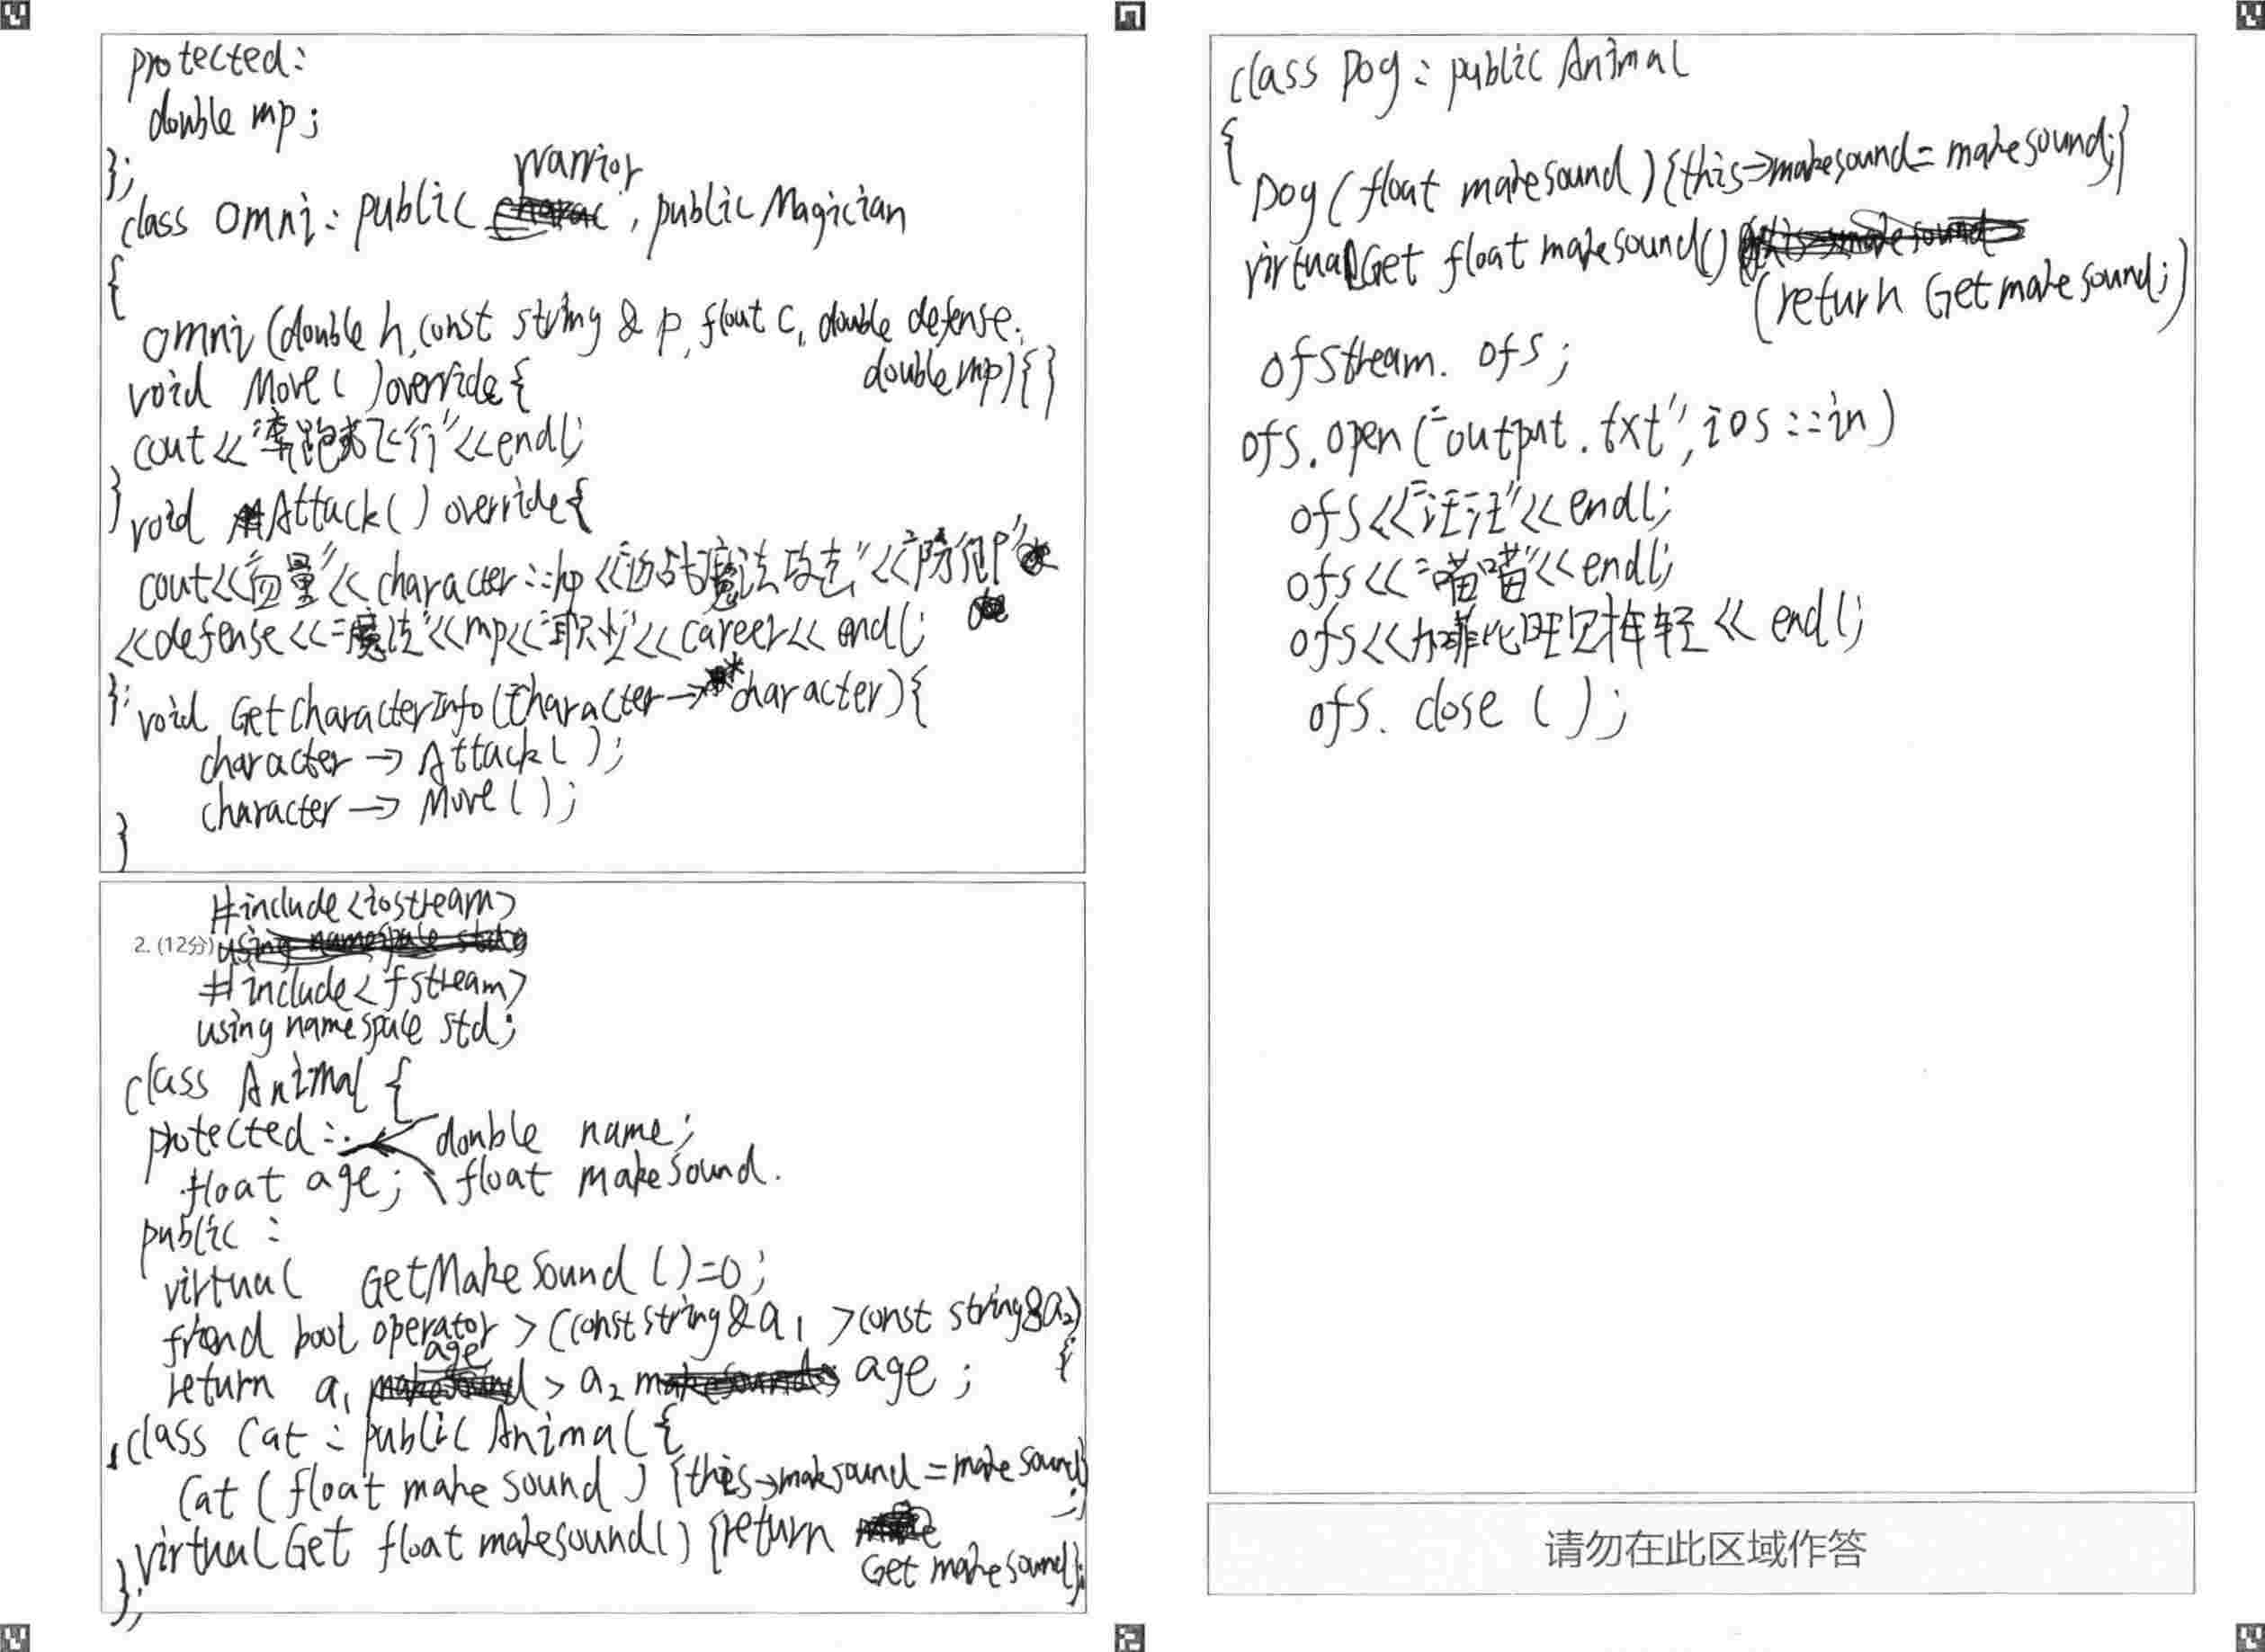 protected:
double mp;
};
class Omni: public Warrior, public Magician
{
Omni(double h, const string & p, float c, double defense,
double mp){}
void Move( )override{
cout<<"奔跑或飞行"<<endl;
} void Attack() override{
cout<<"血量"<<character::hp<<"近战魔法攻击"<<"防御"
<<defense<<"魔法"<<mp<<"职业"<<career<<endl;
}; void GetCharacterInfo(Character→*character){
character→Attack( );
character→Move( );
}
#include<iostream>
2. (12分)
#include<fstream>
using namespace std;
class Animal {
protected: double name;
float age; float makeSound.
public:
virtual GetMakeSound ()=0;
friend bool operator > (const string&a1 >const string&a2)
{
return a1 age > a2 age ;
class Cat: public Animal {
Cat (float make sound ) {this→makesound = make sound;}
virtual Get float makesound() {return
Get makesound};
};
class Dog: public Animal
{
Dog (float makesound ){this→makesound= makesound;}
virtual Get float makesound()
(return Getmakesound;)
ofstream. ofs;
ofs.open("output.txt", ios::in)
ofs<<"汪汪"<<endl;
ofs<<"喵喵"<<endl;
ofs<<加菲比旺财年轻<< endl;
ofs. close ( );
请勿在此区域作答